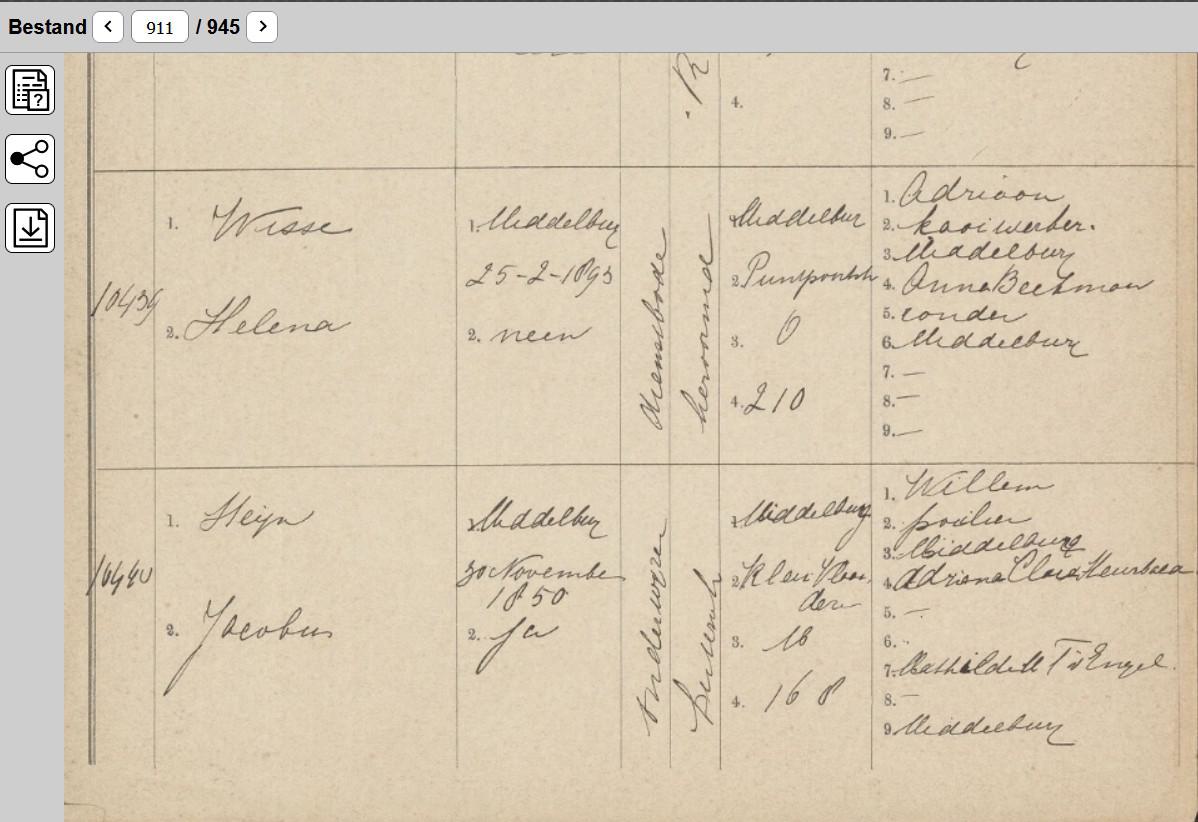 Bestand < 911 / 945 >
7. —
8. —
4.
9. —
10439
1. Wisse
2. Helena
1. Middelburg
25-2-1893
2. neen
dienstbode
hervormd
1. Middelbur
2.
3. 0
4. 210
1. Adriaan
2.
3. Middelburg
4. Anna Beekman
5. zonder
6. Middelburg
7. —
8. —
9. —
10440
1. Heijn
2. Jacobus
1. Middelburg
30 November
1850
2. Ja
onderwijzer
1. Middelburg
2. Klein Vlaan
deren
3. 16
4. 168
1. Willem
2.
3. Middelburg
4. Adriana Clara
5. —
6. -
7. Mathilde M T v Engel.
8. —
9. Middelburg